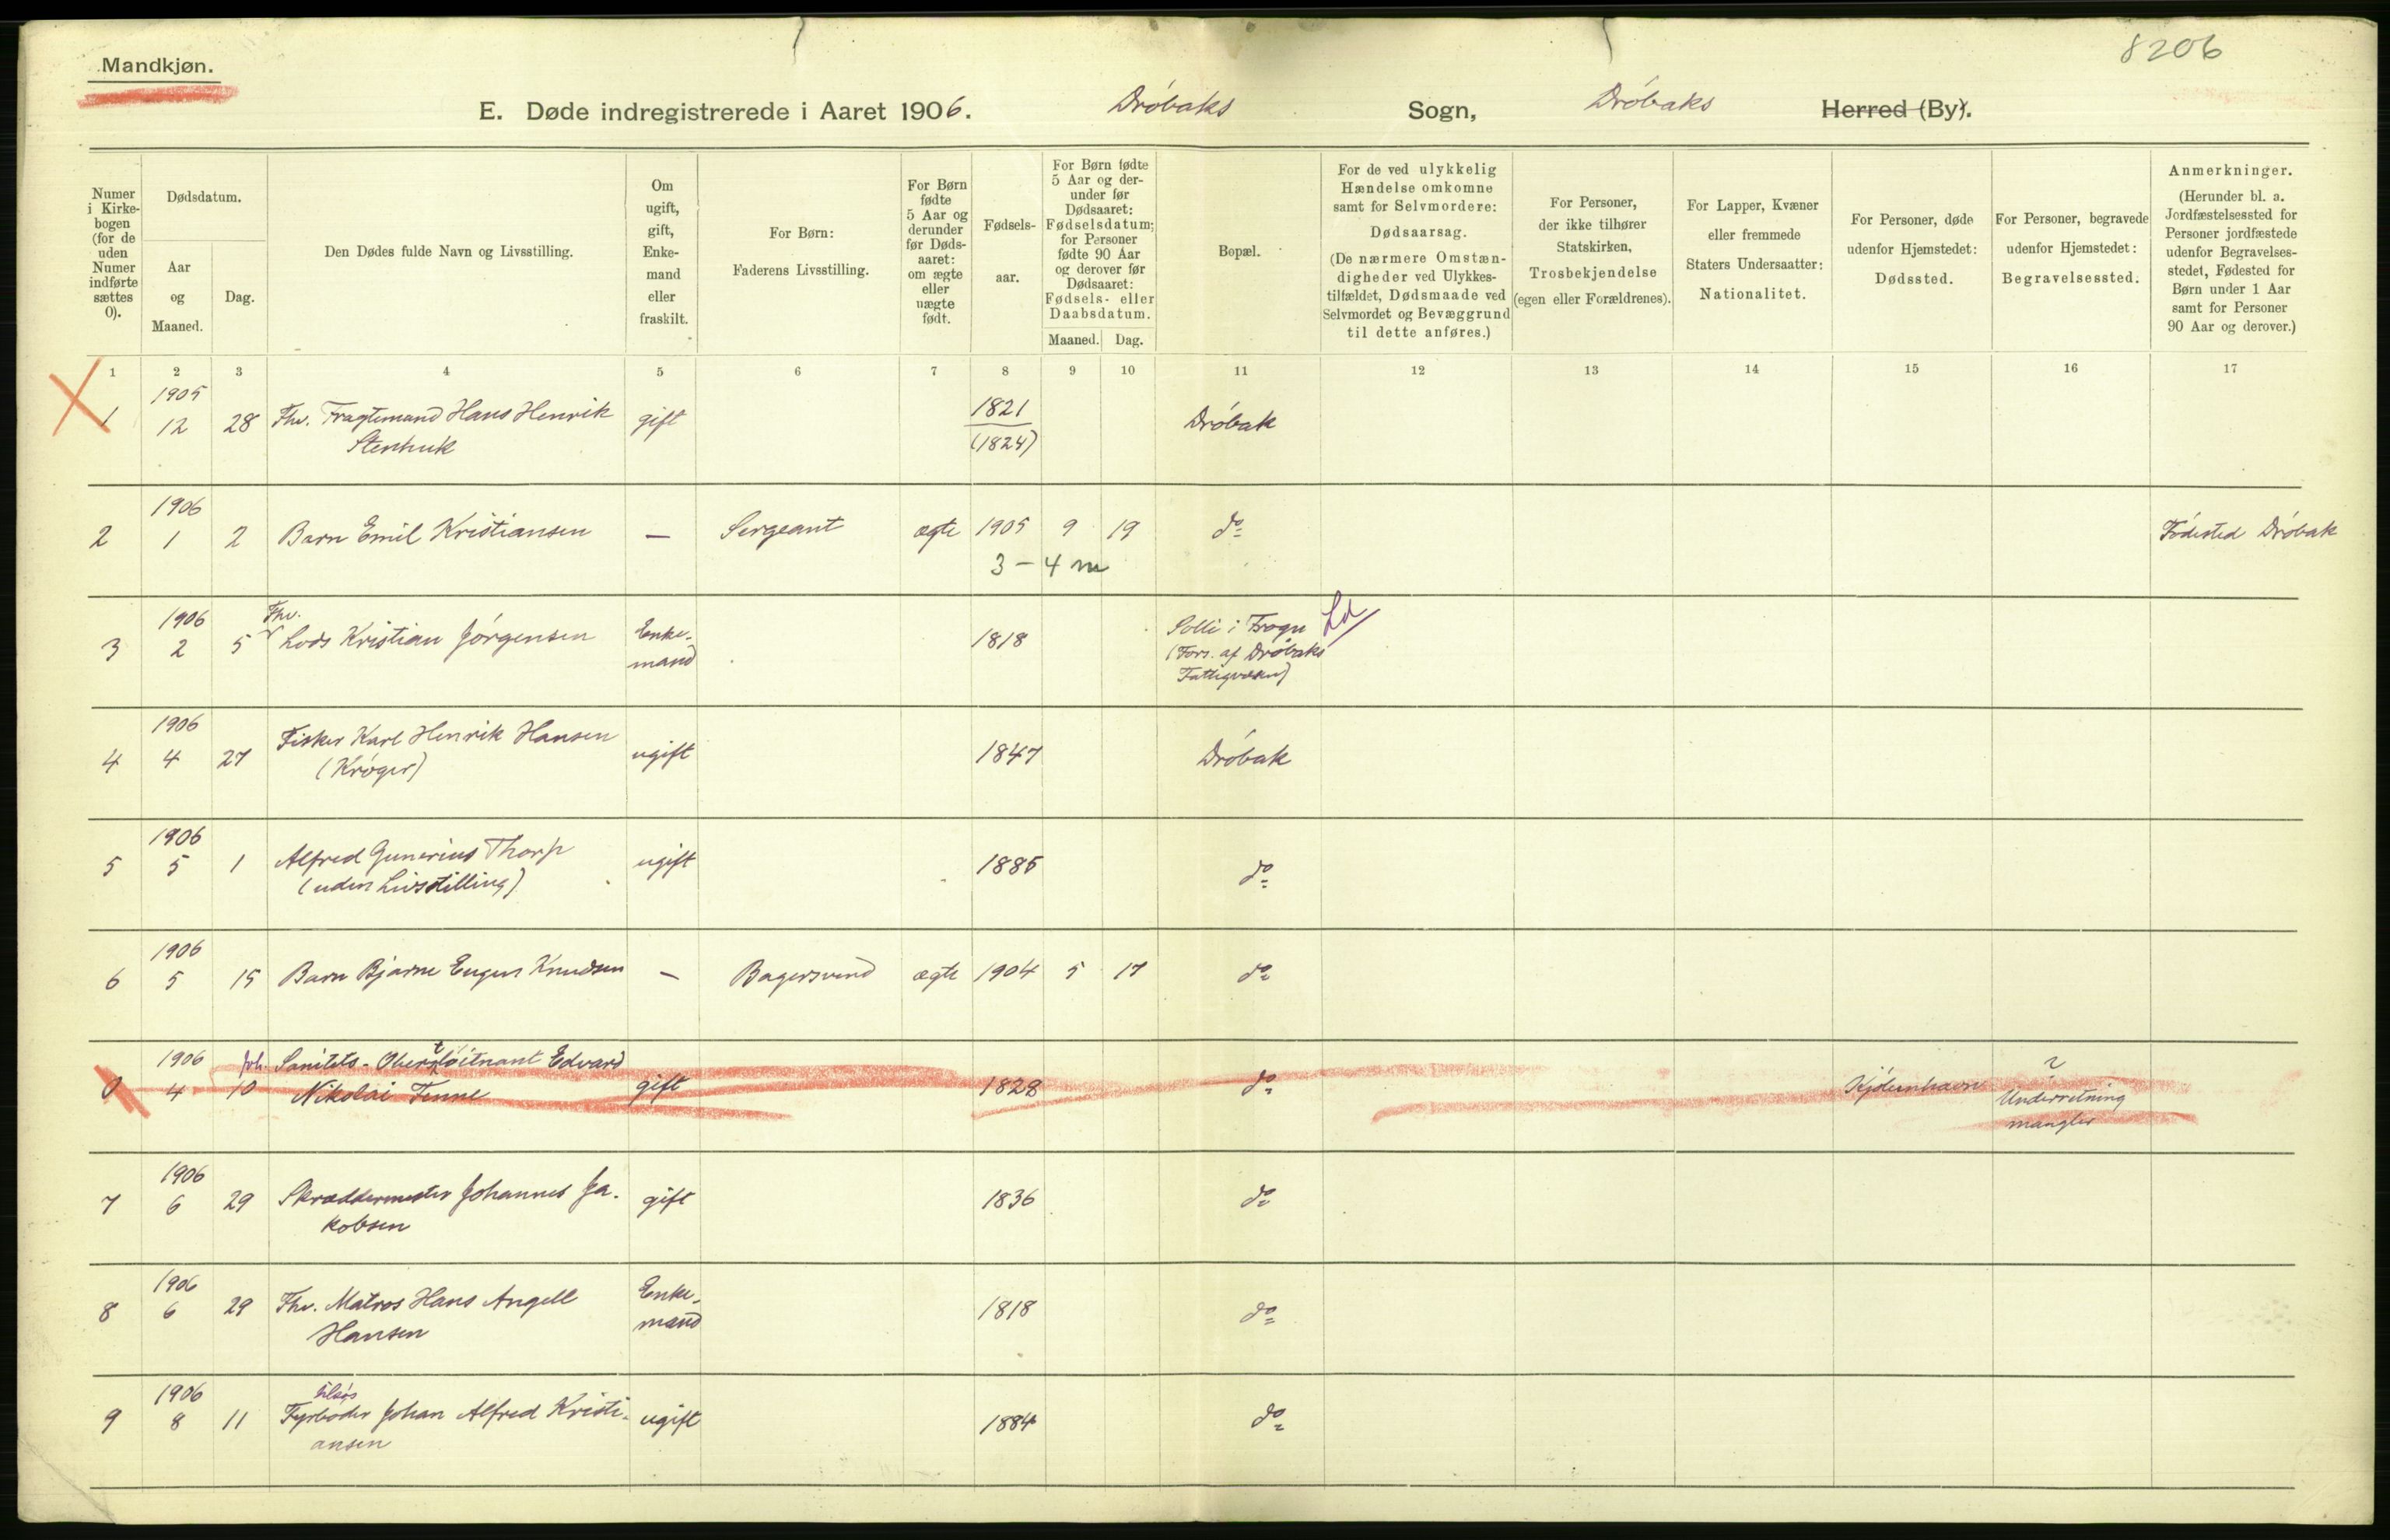 8206
Mandkjøn.
E. Døde indregistrerede i Aaret 1906. Drøbaks Sogn, Drøbaks Herred (By).
Numer i Kirkebogen (for de uden Numer indførte sættes 0).
Dødsdatum.
Aar og Maaned.
Dag.
Den Dødes fulde Navn og Livsstilling.
Om ugift, gift, Enkemand eller fraskilt.
For Børn: Faderens Livsstilling.
For Børn fødte 5 Aar og derunder før Dødsaaret: om ægte eller uægte født.
Fødselsaar.
For Børn fødte 5 Aar og derunder før Dødsaaret: Fødselsdatum; for Personer fødte 90 Aar og derover før Dødsaaret: Fødsels- eller Daabsdatum.
Maaned. Dag.
Bopæl.
For de ved ulykkelig Hændelse omkomne samt for Selvmordere: Dødsaarsag. (De nærmere Omstændigheder ved Ulykkestilfældet, Dødsmaade ved Selvmordet og Bevæggrund til dette anføres.)
For Personer, der ikke tilhører Statskirken, Trosbekjendelse (egen eller Forældrenes).
For Lapper, Kvæner eller fremmede Staters Undersaatter: Nationalitet.
For Personer, døde udenfor Hjemstedet: Dødssted.
For Personer, begravede udenfor Hjemstedet: Begravelsessted.
Anmerkninger. (Herunder bl. a. Jordfæstelsessted for Personer jordfæstede udenfor Begravelsesstedet, Fødested for Børn under 1 Aar samt for Personer 90 Aar og derover.)
1 2 3 4 5 6 7 8 9 10 11 12 13 14 15 16 17
1905
1 12 28 Fhv. Fragtemand Hans Henrik gift 1821 Drøbak
Stenhuk (1824)
1906
2 1 2 Barn Emil Kristiansen — Sergeant ægte 1905 9 19 do Fødested Drøbak
3 – 4 m
1906 Fhv.
3 2 5 Lods Kristian Jørgensen Enke- 1818 Solli i Frogn Ld
mand (Fors. af Drøbaks
Fattigvæsen)
1906
4 4 27 Fisker Karl Henrik Hansen ugift 1847 Drøbak
(Krøger)
1906
5 5 1 Alfred Gunerius Thorp ugift 1885 do
(uden Livsstilling)
1906
6 5 15 Barn Bjarne Eugen Knudsen — Bagersvend ægte 1904 5 17 do
1906 Joh. Sanitets-Oberstløitnant Edvard
0 4 10 Nikolai Finne gift 1828 do Kjøbenhavn ?
Underretning
mangler
1906
7 6 29 Skræddermester Johannes Ja- gift 1836 do
kobsen
1906
8 6 29 Fhv. Matros Hans Angell Enke- 1818 do
Hansen mand
1906 tilsøs
9 8 11 Fyrbøder Johan Alfred Kristi- ugift 1884 do
ansen